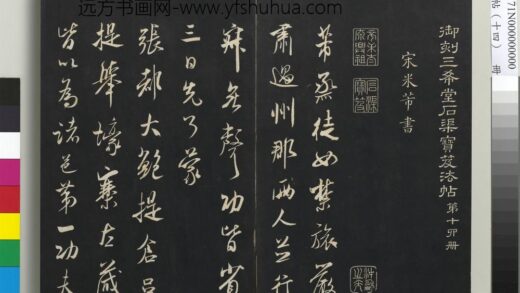 远方书画网-www.yfshuhua.com
71N000000000
帖(十四) 册
御刻三希堂石渠寶笈法帖 第十四册
宋米芾書
芾烝徒如禁旅嚴
肅過州郡兩人並行
寂無聲功皆省
三日先了蒙
張都大鮑提倉呂
提舉壕寨左藏
皆以為諸邑第一功夫